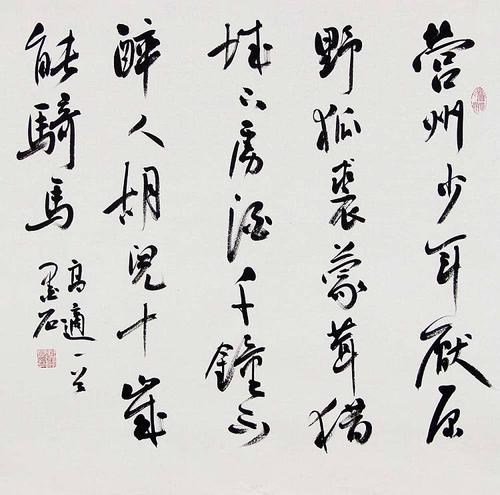 营州少年厭原
野狐裘蒙茸猎
城下虜酒千鐘不
醉人胡兒十歲
能騎馬
高適一首
墨石